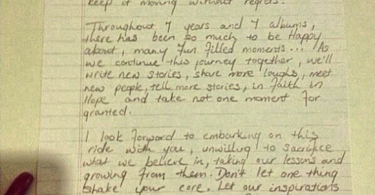 keep it moving without regrets.
Throughout 7 years and 7 albums,
there has been so much to be Happy
about, many Fun filled moments... As
we continue this journey together, we'll
write new stories, share more laughs, meet
new people, tell more stories, in faith in
Hope and take not one moment for
granted.
I look forward to embarking on this
ride with you, unwilling to sacrifice
what we believe in, taking our lessons and
growing from them. Don't let one thing
shake your core. Let our inspirations